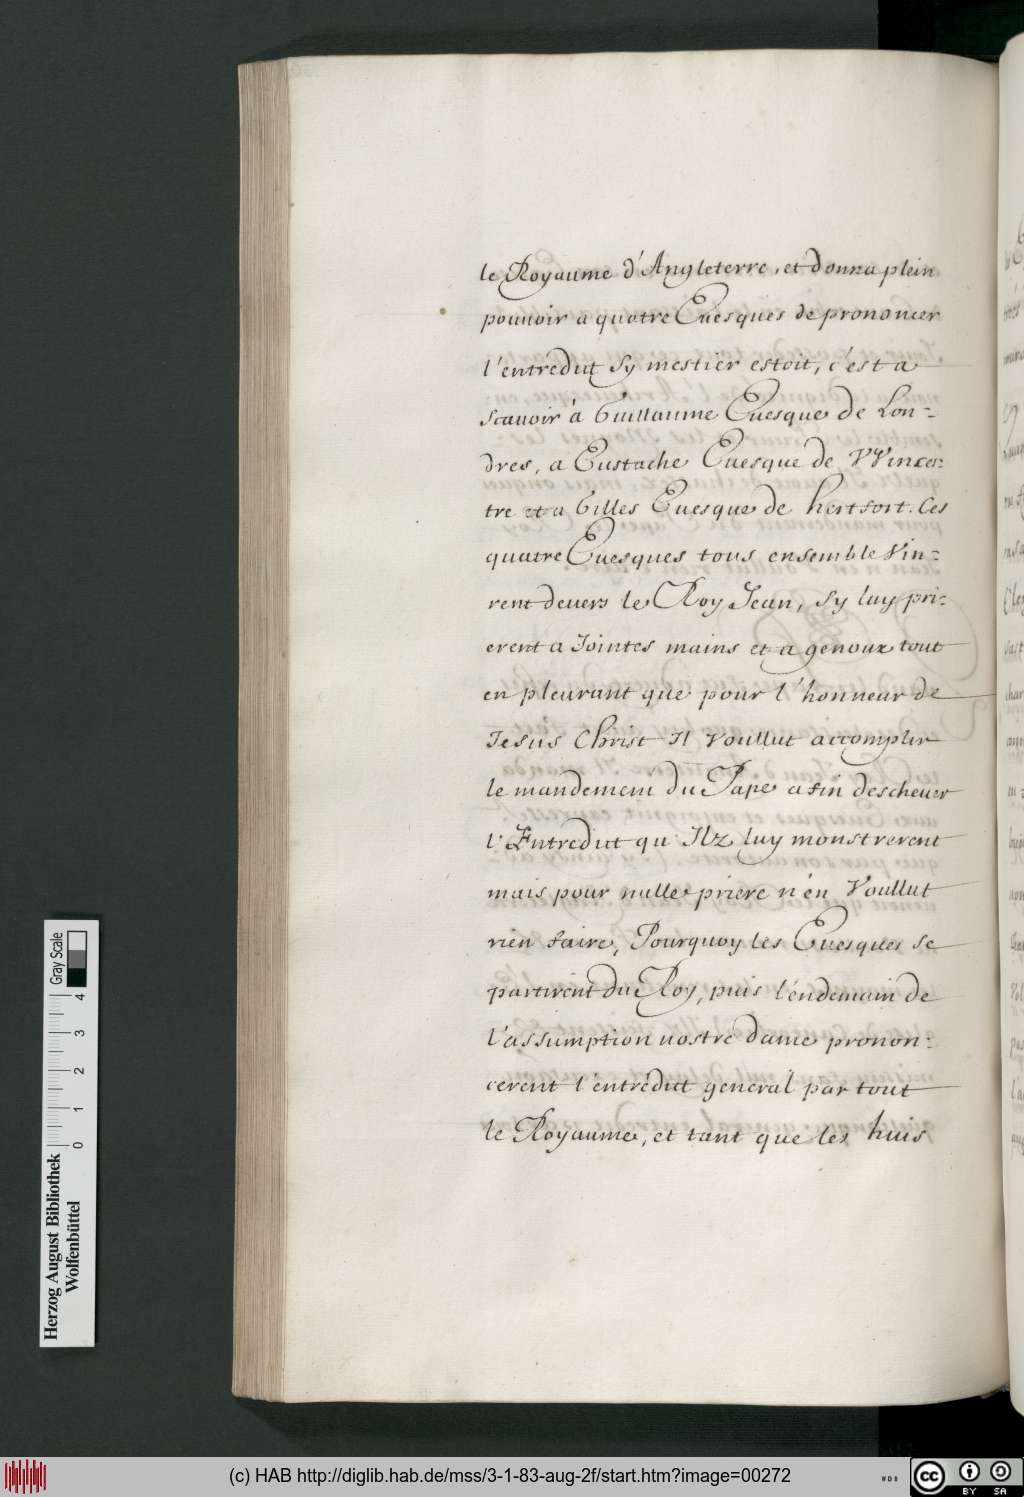 le Royaume d'Angleterre, et donna plein
pouuoir a quatre Euesques de prononcer
l'entredut sy mestier estoit, c'est a
scauoir a Guillaume Euesque de Lon-
dres, a Eustache Euesque de VVinces-
tre et a Gilles Euesque de hertfort. Ces
quatre Euesques tous ensemble vin-
rent deuers le Roy Jean, sy luy pri-
erent a Jointes mains et a genoux tout
en pleurant que pour l'honneur de
Jesus Christ Il voullut accomplir
le mandement du Pape afin descheuer
l'Entredut qu Ilz luy monstrerent
mais pour nulle priere n'en Voullut
rien faire, Pourquoy les Euesques se
partirent du Roy, puis l'endemain de
l'assumption nostre dame pronon-
cerent l'entredut general par tout
le Royaume, et tant que les huis
Herzog August Bibliothek
Wolfenbüttel
0 1 2 3 4
Gray Scale
(c) HAB http://diglib.hab.de/mss/3-1-83-aug-2f/start.htm?image=00272
WDB
cc
BY SA